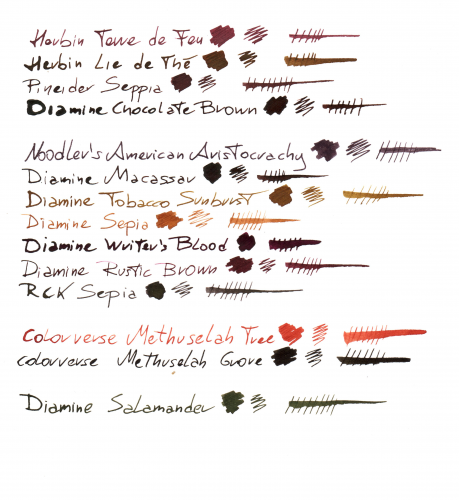 Herbin Terre de Feu
Herbin Lie de Thé
Pineider Seppia
Diamine Chocolate Brown
Noodler's American Aristocrachy
Diamine Macassar
Diamine Tobacco Sunburst
Diamine Sepia
Diamine Writer's Blood
Diamine Rustic Brown
RCK Sepia
Colorverse Methuselah Tree
colorverse Methuselah Grove
Diamine Salamander